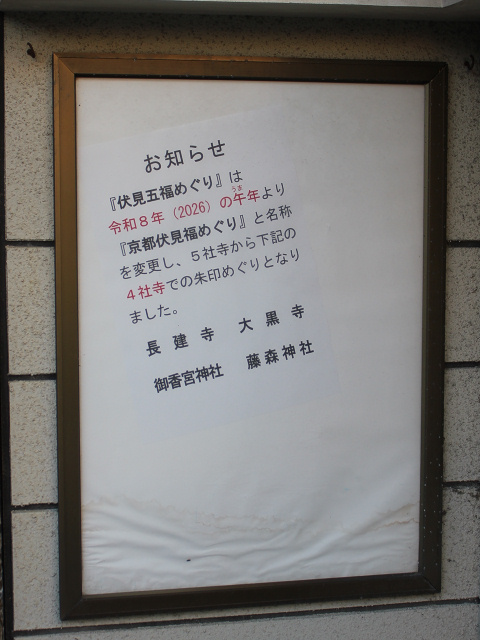 お知らせ
『伏見五福めぐり』は
令和8年（2026）の午年より
うま
『京都伏見福めぐり』と名称
を変更し、5社寺から下記の
4社寺での朱印めぐりとなり
ました。
長建寺 大黒寺
御香宮神社 藤森神社